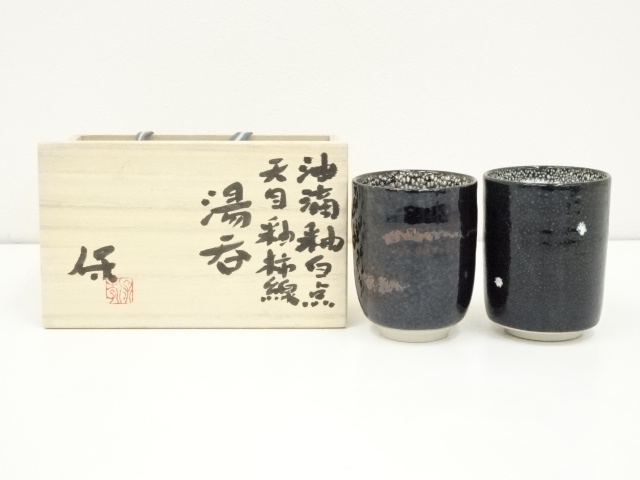 油滴釉白点
天目釉柿線
湯呑
保